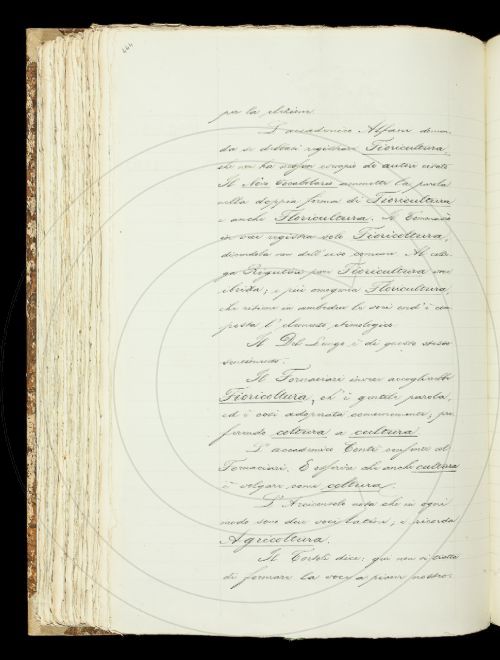 444
per la elezione.
L'accademico Alfani doman-
da se debbasi registrare Fioricultura
che non ha nessun esempio di autori citati
Il Novo Vocabolario ammette la parola
nella doppia forma di Fioricultura
e anche Floricultura. Il
in vece registra solo Fioricoltura,
dicendola non dell'uso comune. Al colle-
ga Rigutini pare Fioricultura voce
ibrida; è più omogenea Floricultura,
che ritiene in ambedue le voci ond'è com-
posta l'elemento etimologico
Il Del Lungo è di questo stesso
sentimento.
Il Tornaciari invece accoglierebbe
Fioricoltura, ch'è gentile parola,
ed è voce adoperata comunemente; pre-
ferendo coltura a cultura.
L'accademico Conti conforme al
Fornaciari. E osserva che anche cultura
è volgare come coltura.
L'Arciconsolo nota che in ogni
modo sono due voci latine; e ricorda
Agricoltura.
Il Tortoli dice: qui non si tratta
di formare la voce a piacer nostro: